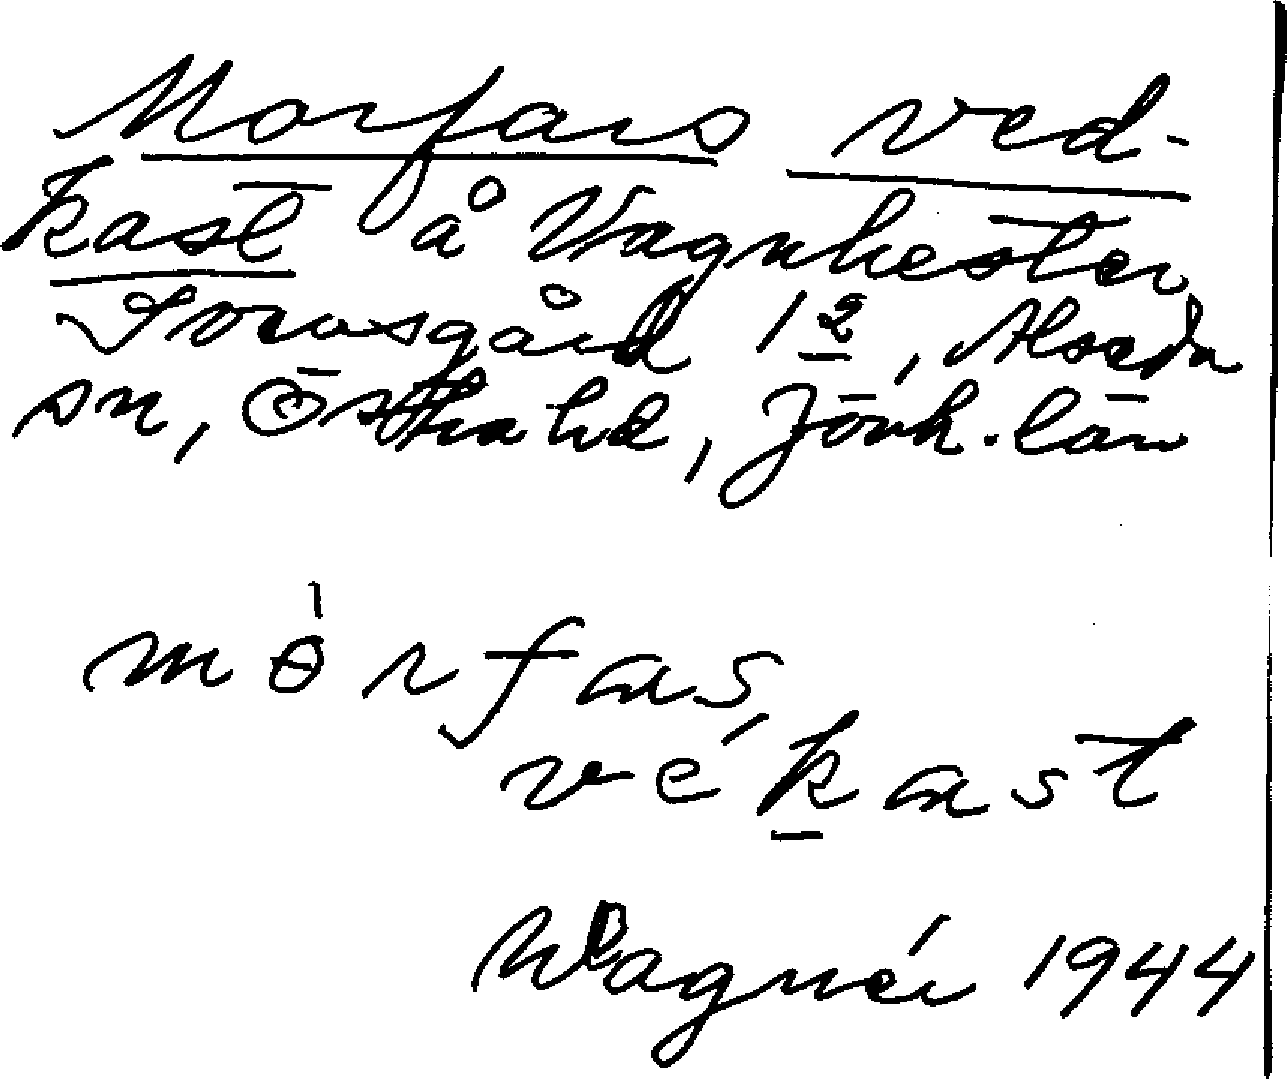 Morfars ved-
kast å Vagnhester
Torvsgård 1 2, Alseda
sn, Östra hd, Jönk. län
mòrfas,
vékast
Wagnér 1944